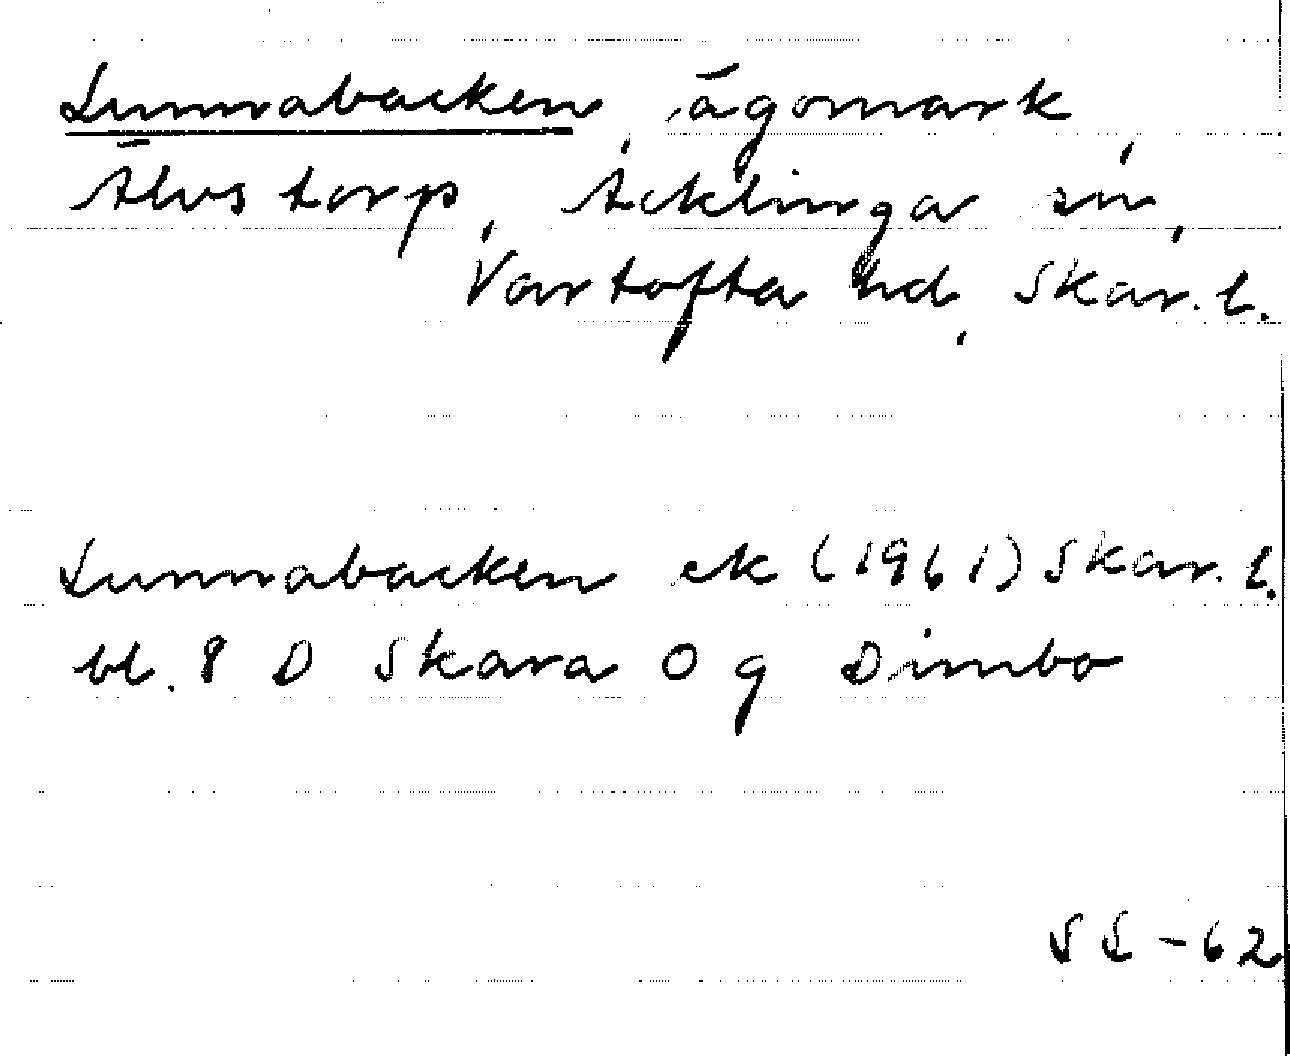 Lunnabacken, ägomark,
Älvstorp, Acklinga sn,
Vartofta hd, Skar. l.
Lunnabacken ek (1961) Skar. l.
bl. 8 D Skara 0 g Dimbo
SL-62